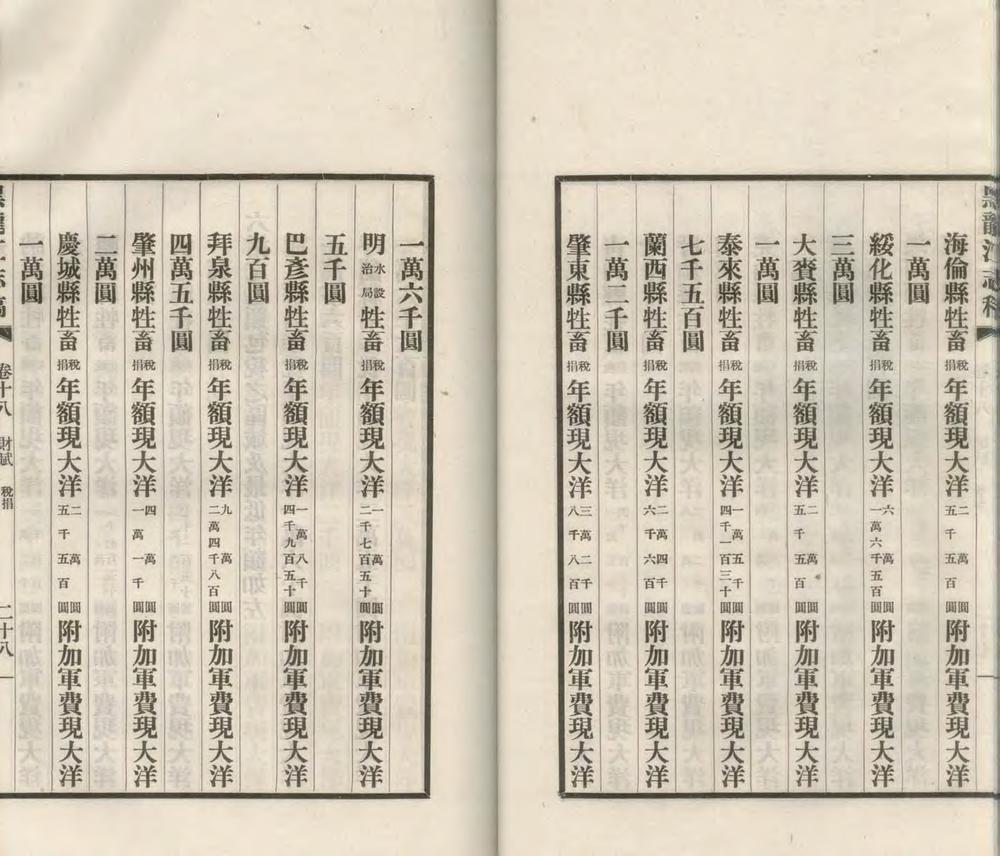 黑龍江志稿
海倫縣牲畜稅捐年額現大洋二萬圓五千五百圓附加軍費現大洋
一萬圓
綏化縣牲畜稅捐年額現大洋六萬圓一萬六千五百圓附加軍費現大洋
三萬圓
大賚縣牲畜稅捐年額現大洋二萬圓五千五百圓附加軍費現大洋
一萬圓
泰來縣牲畜稅捐年額現大洋一萬五千圓四千一百三十圓附加軍費現大洋
七千五百圓
蘭西縣牲畜稅捐年額現大洋二萬四千圓六千六百圓附加軍費現大洋
一萬二千圓
肇東縣牲畜稅捐年額現大洋三萬二千圓八千八百圓附加軍費現大洋
一萬六千圓
明水設治局牲畜稅捐年額現大洋一萬圓二千七百五十圓附加軍費現大洋
五千圓
巴彥縣牲畜稅捐年額現大洋一萬八千圓四千九百五十圓附加軍費現大洋
九百圓
拜泉縣牲畜稅捐年額現大洋九萬圓二萬四千八百圓附加軍費現大洋
四萬五千圓
肇州縣牲畜稅捐年額現大洋四萬圓一萬一千圓附加軍費現大洋
二萬圓
慶城縣牲畜稅捐年額現大洋二萬圓五千五百圓附加軍費現大洋
一萬圓
黑龍江志稿 卷十八 財賦 稅捐 二十八